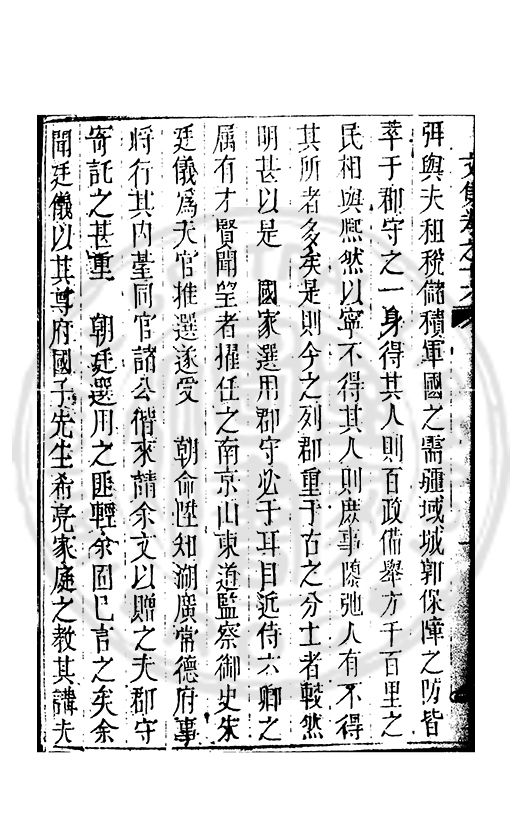 弭與夫租稅儲積軍國之需疆域城郭保障之防皆
萃于郡守之一身得其人則百政備舉方千百里之
民相與熈然以寧不得其人則庶事隳弛人有不得
其所者多矣是則今之列郡重于古之分土者較然
明甚以是 國家選用郡守必于耳目近侍六卿之
属有才賢聞望者擢任之南京山東道監察御史朱
廷儀爲天官推選遂受 朝命陞知湖廣常德府事
將行其内臺同官諸公偕來請余文以贈之夫郡守
寄託之甚重 朝廷選用之匪輕余固已言之矣余
聞廷儀以其尊府國子先生希亮家庭之教其講夫